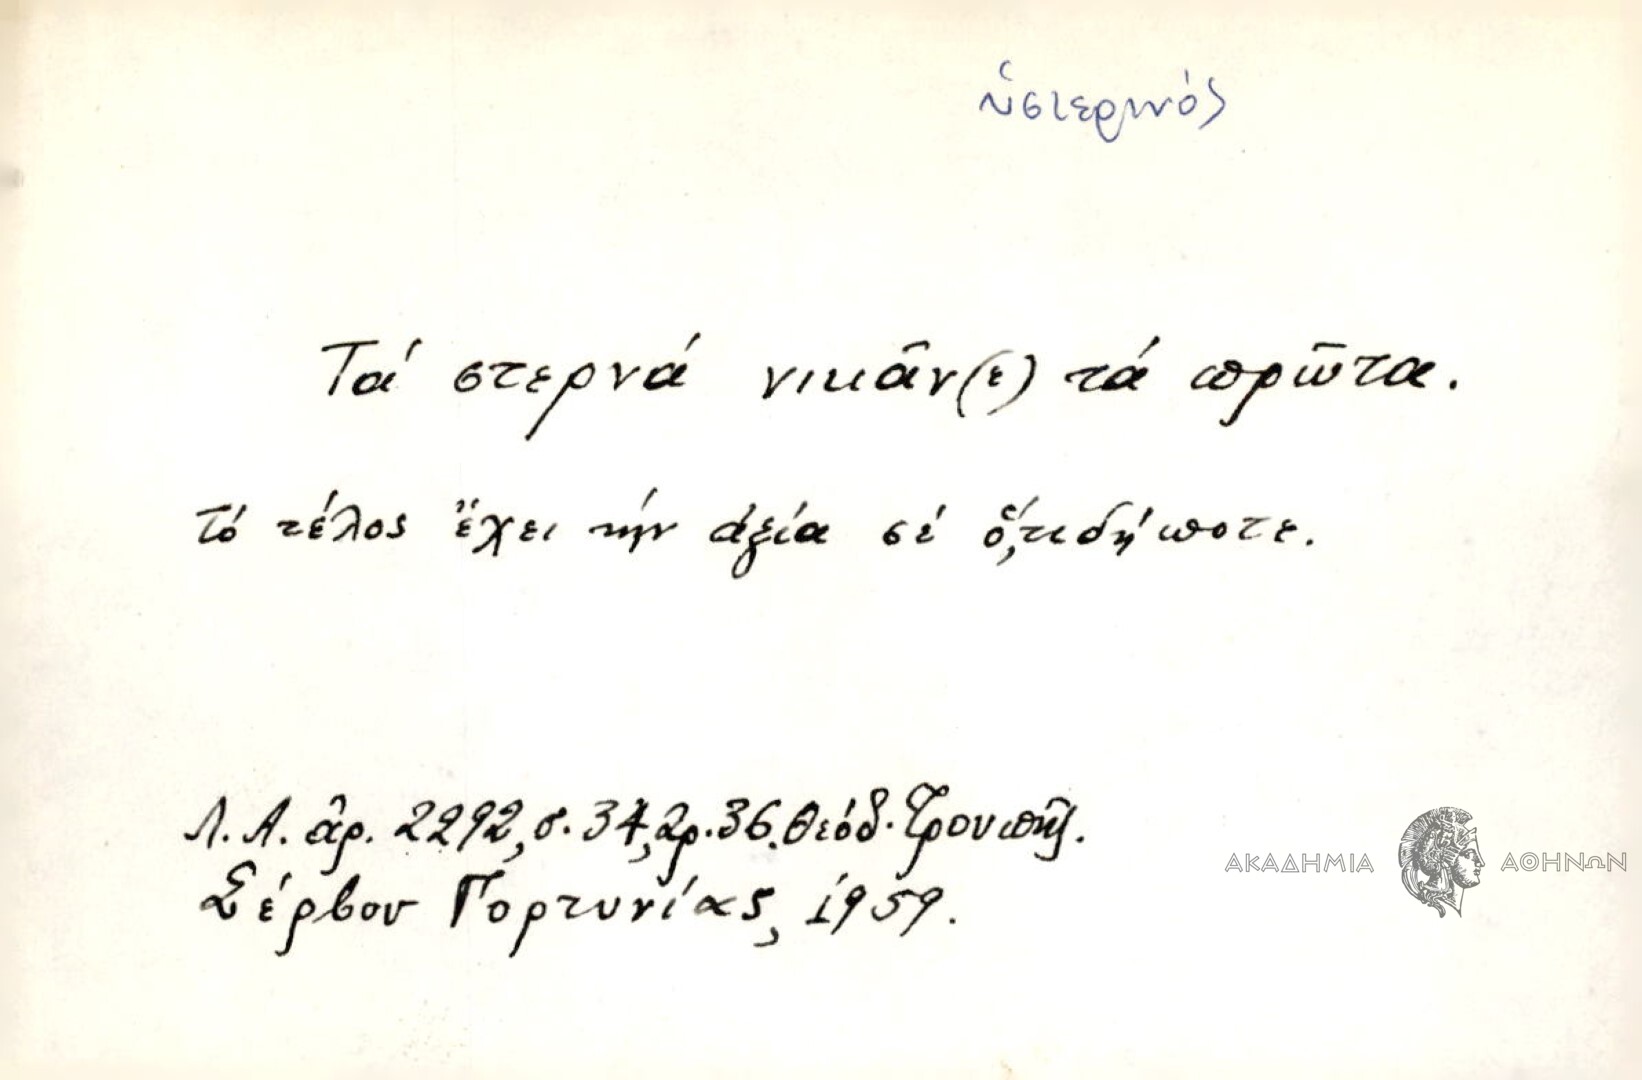 ὑστερινός
Τά στερνά νικᾶν(ε) τά πρῶτα.
Τό τέλος ἔχει τήν ἀξία σέ ὅ,τιδήποτε.
Λ. Α. ἀρ. 2292, σ. 34, ἀρ. 36. Θεόδ. Τρουπῆς.
Σέρβου Γορτυνίας, 1959.
ΑΚΑΔΗΜΙΑ ΑΘΗΝΩΝ